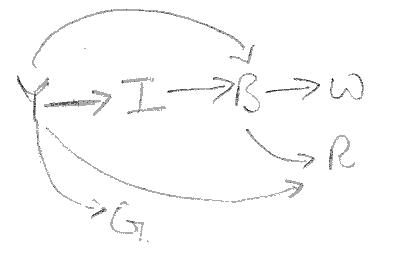 Y I B W
R
G